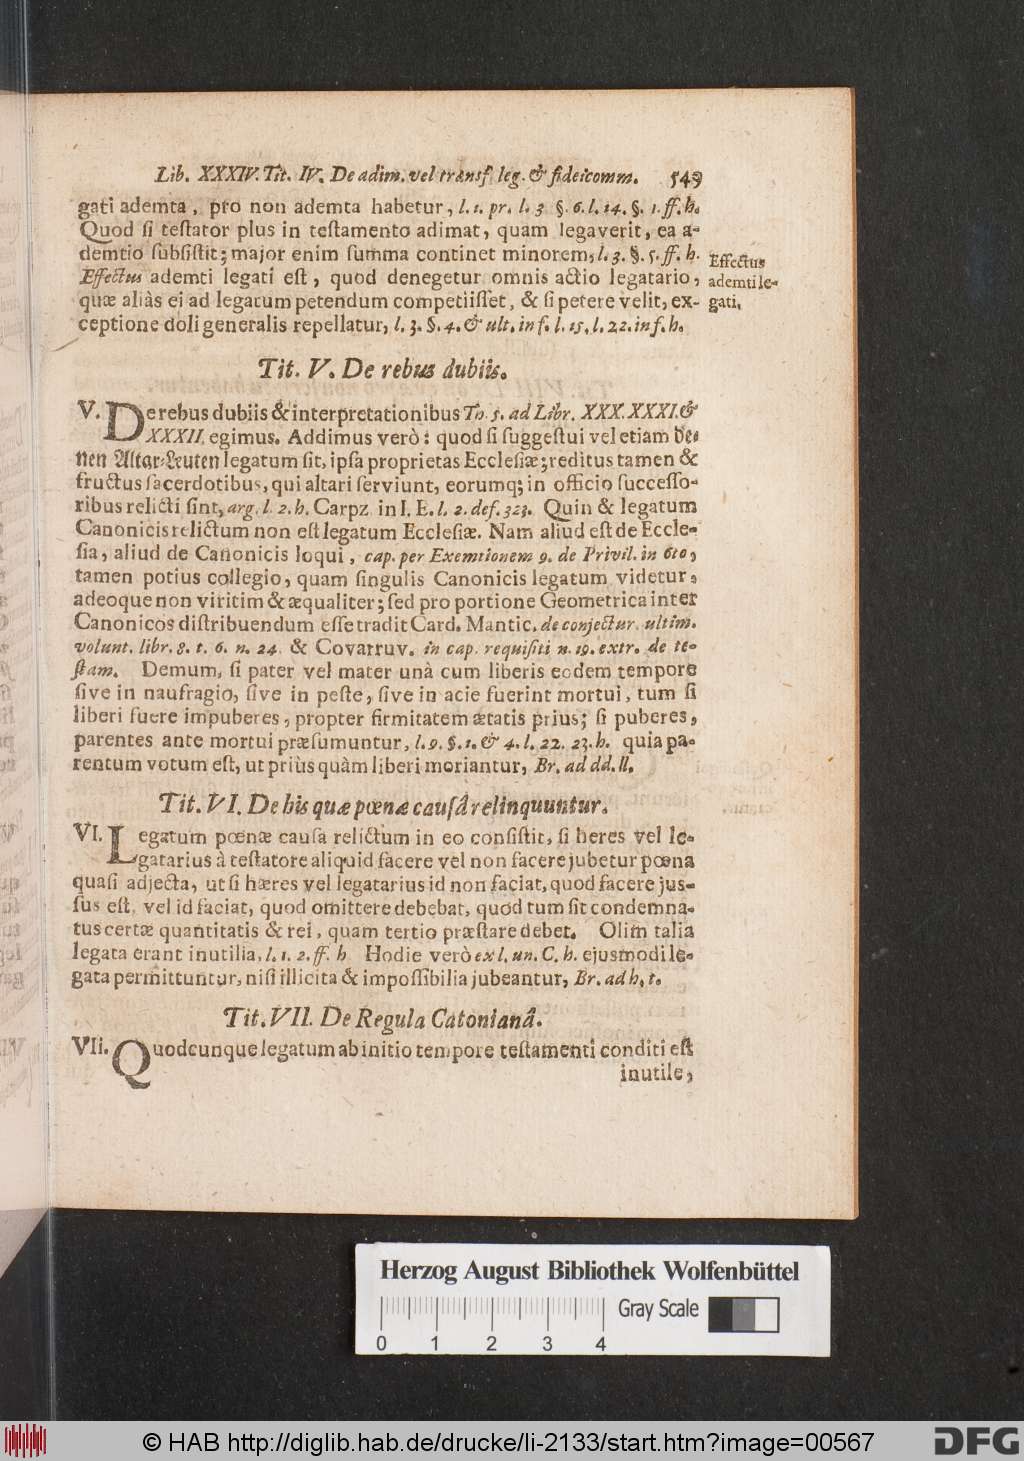 Lib. XXXIV. Tit. IV. De adim. vel transf. leg. & fideicomm. 549
gati ademta, pro non ademta habetur, l. 1. pr. l. 3 §. 6. l. 14. §. 1. ff. h.
Quod ſi teſtator plus in teſtamento adimat, quam legaverit, ea a-
demtio ſubſiſtit; major enim ſumma continet minorem, l. 3. §. 5. ff. h.
Effectus ademti legati eſt, quod denegetur omnis actio legatario,
quæ aliàs ei ad legatum petendum competiiſſet, & ſi petere velit, ex-
ceptione doli generalis repellatur, l. 3. §. 4. & ult. in f. l. 15. l. 22. in f. h.
Effectus
ademti le-
gati.
Tit. V. De rebus dubiis.
V. De rebus dubiis & interpretationibus Th. 5. ad Libr. XXX. XXXI. &
XXXII. egimus. Addimus verò: quod ſi ſuggeſtui vel etiam de-
nen Altar-Leuten legatum ſit, ipſa proprietas Eccleſiæ; reditus tamen &
fructus ſacerdotibus, qui altari ſerviunt, eorumq; in officio ſucceſſo-
ribus relicti ſint, arg. l. 2. h. Carpz. in I. E. l. 2. def. 323. Quin & legatum
Canonicis relictum non eſt legatum Eccleſiæ. Nam aliud eſt de Eccle-
ſia, aliud de Canonicis loqui, cap. per Exemtionem 9. de Privil. in 6to,
tamen potius collegio, quam ſingulis Canonicis legatum videtur,
adeoque non viritim & æqualiter; ſed pro portione Geometrica inter
Canonicos diſtribuendum eſſe tradit Card. Mantic. de conjectur. ultim.
volunt. libr. 8. t. 6. n. 24. & Covarruv. in cap. requiſiti n. 19. extr. de te-
ſtam. Demum, ſi pater vel mater unà cum liberis eodem tempore
ſive in naufragio, ſive in peſte, ſive in acie fuerint mortui, tum ſi
liberi fuere impuberes, propter firmitatem ætatis prius; ſi puberes,
parentes ante mortui præſumuntur, l. 9. §. 1. & 4. l. 22. 23. h. quia pa-
rentum votum eſt, ut priùs quàm liberi moriantur, Br. ad dd. ll.
Tit. VI. De his quæ pœnæ causâ relinquuntur.
VI. Legatum pœnæ cauſa relictum in eo conſiſtit, ſi heres vel le-
gatarius à teſtatore aliquid facere vel non facere jubetur pœna
quaſi adjecta, ut ſi hæres vel legatarius id non faciat, quod facere juſ-
ſus eſt, vel id faciat, quod omittere debebat, quod tum ſit condemna-
tus certæ quantitatis & rei, quam tertio præſtare debet. Olim talia
legata erant inutilia, l. 1. 2. ff. h. Hodie verò ex l. un. C. h. ejusmodi le-
gata permittuntur, niſi illicita & impoſſibilia jubeantur, Br. ad h. t.
Tit. VII. De Regula Catonianâ.
VII. Quodcunque legatum ab initio tempore teſtamenti conditi eſt
inutile,
Herzog August Bibliothek Wolfenbüttel
0 1 2 3 4
Gray Scale
© HAB http://diglib.hab.de/drucke/li-2133/start.htm?image=00567
DFG